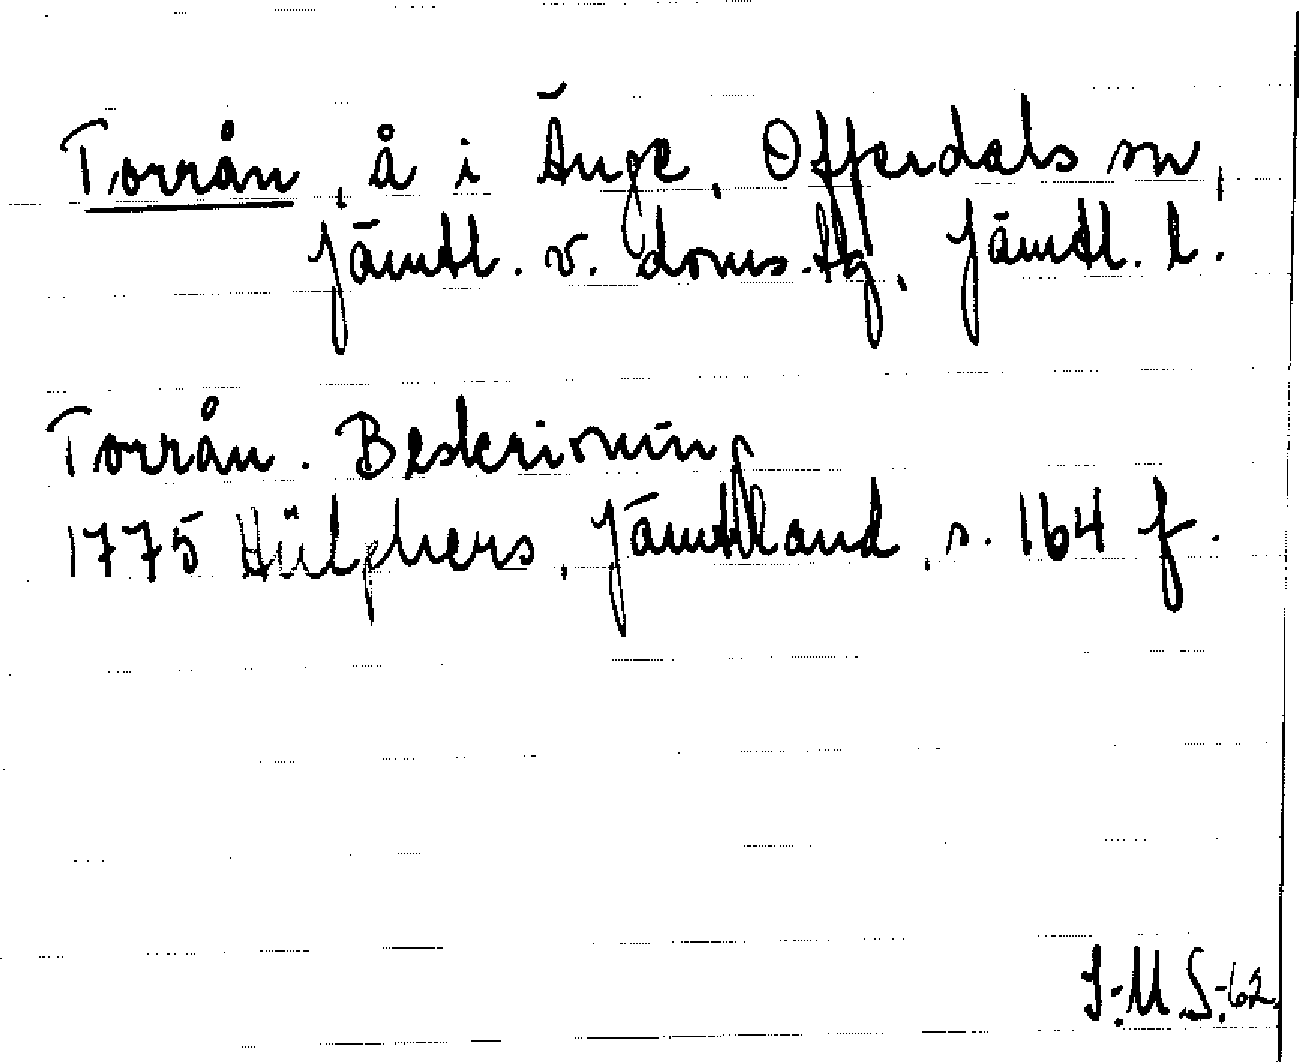 Torrån, å i Änge, Offerdals sn,
Jämtl. v. doms.tg, Jämtl. l.
Torrån. Beskrivning
1775 Hülphers, Jämtland, s. 164 f.
I-M.S.-62